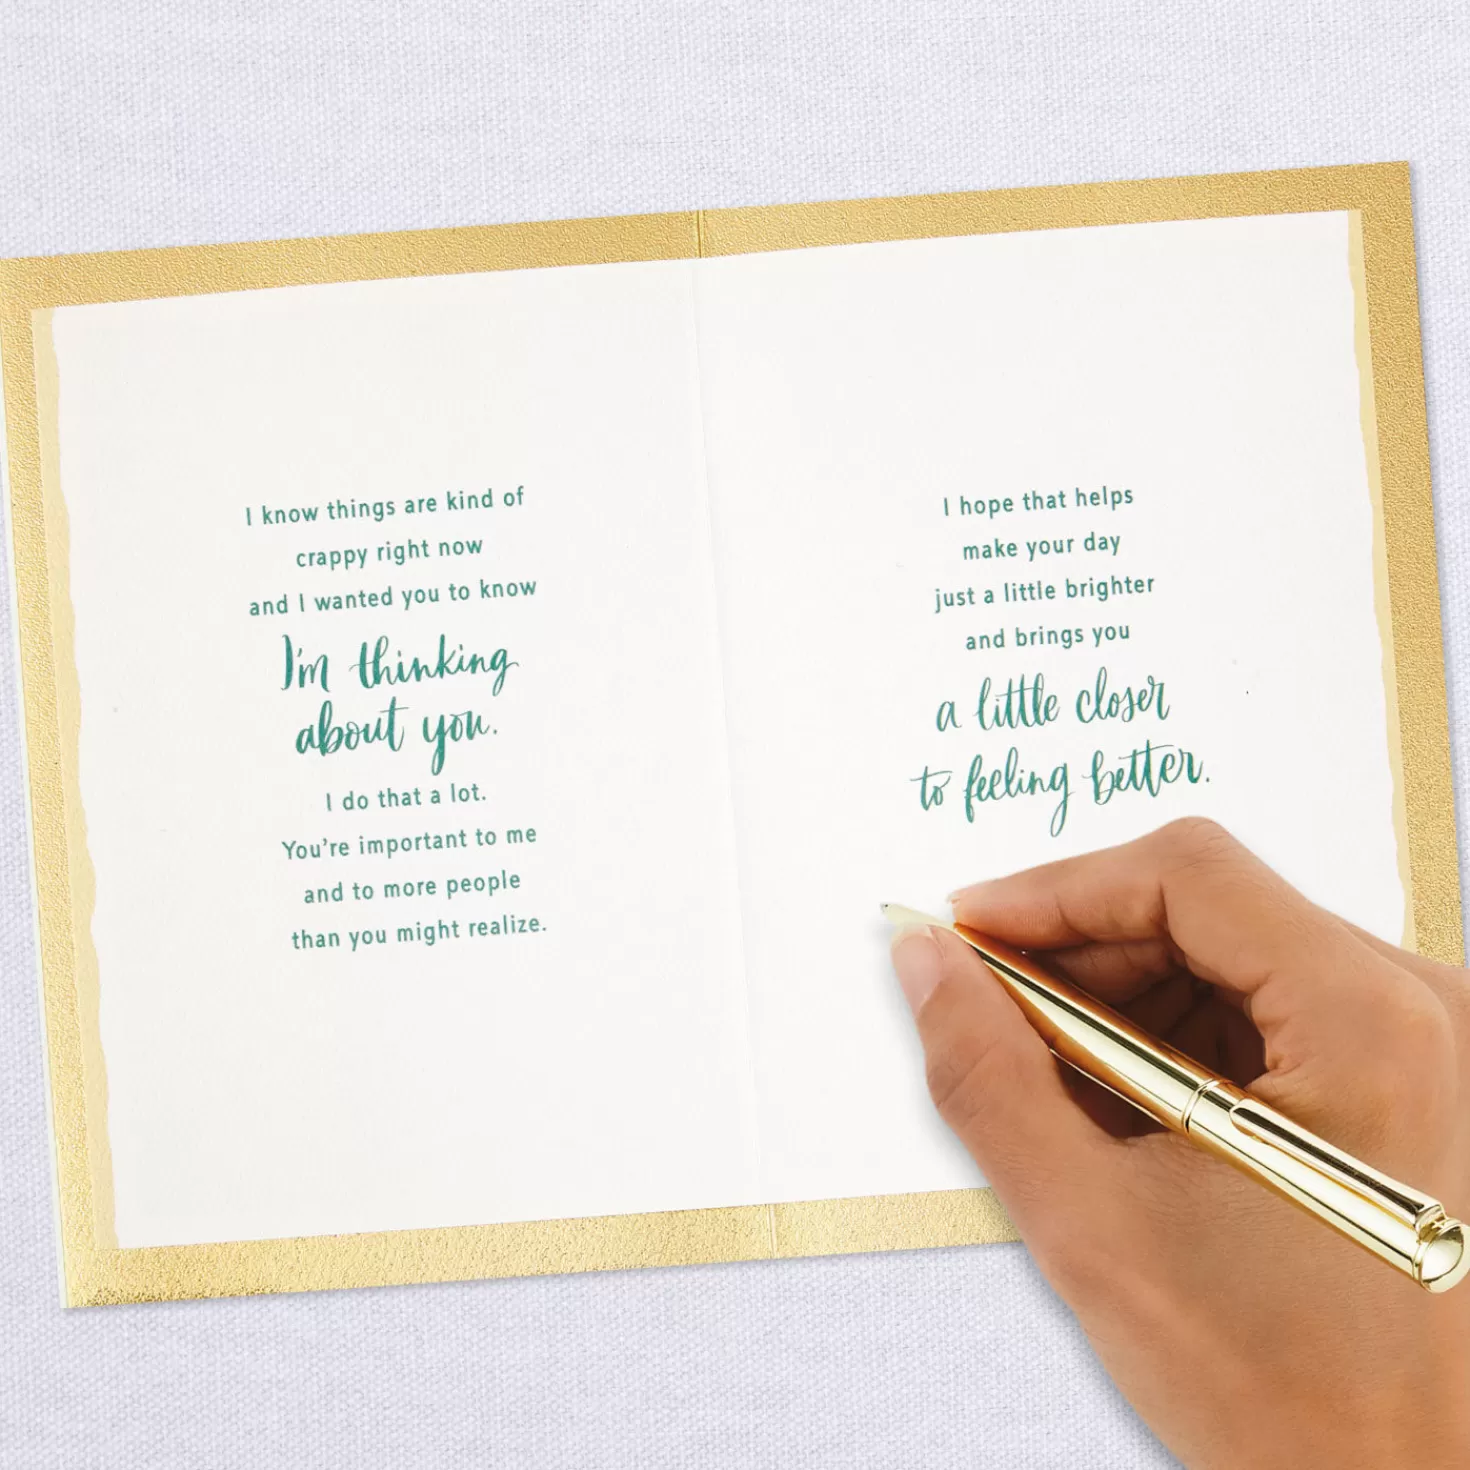 I know things are kind of
crappy right now
and I wanted you to know
I'm thinking
about you.
I do that a lot.
You're important to me
and to more people
than you might realize.
I hope that helps
make your day
just a little brighter
and brings you
a little closer
to feeling better.